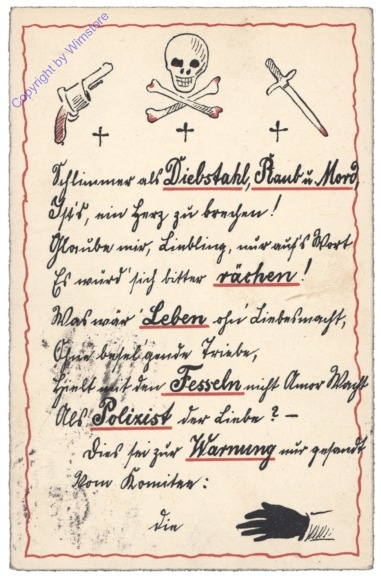 Copyright by Wimstore
Schlimmer als Diebstahl, Raub u. Mord,
Ist's, ein Herz zu brechen!
Glaube mir, Liebling, nur auf's Wort
Es würd' sich bitter rächen!
Was wär' Leben ohn' Liebesmacht,
Ohne besel'gende Triebe,
Hielt mit den Fesseln nicht Amor Wacht
Als Polizist der Liebe? —
Dies sei zur Warnung nur gesandt
Vom Komitee:
die